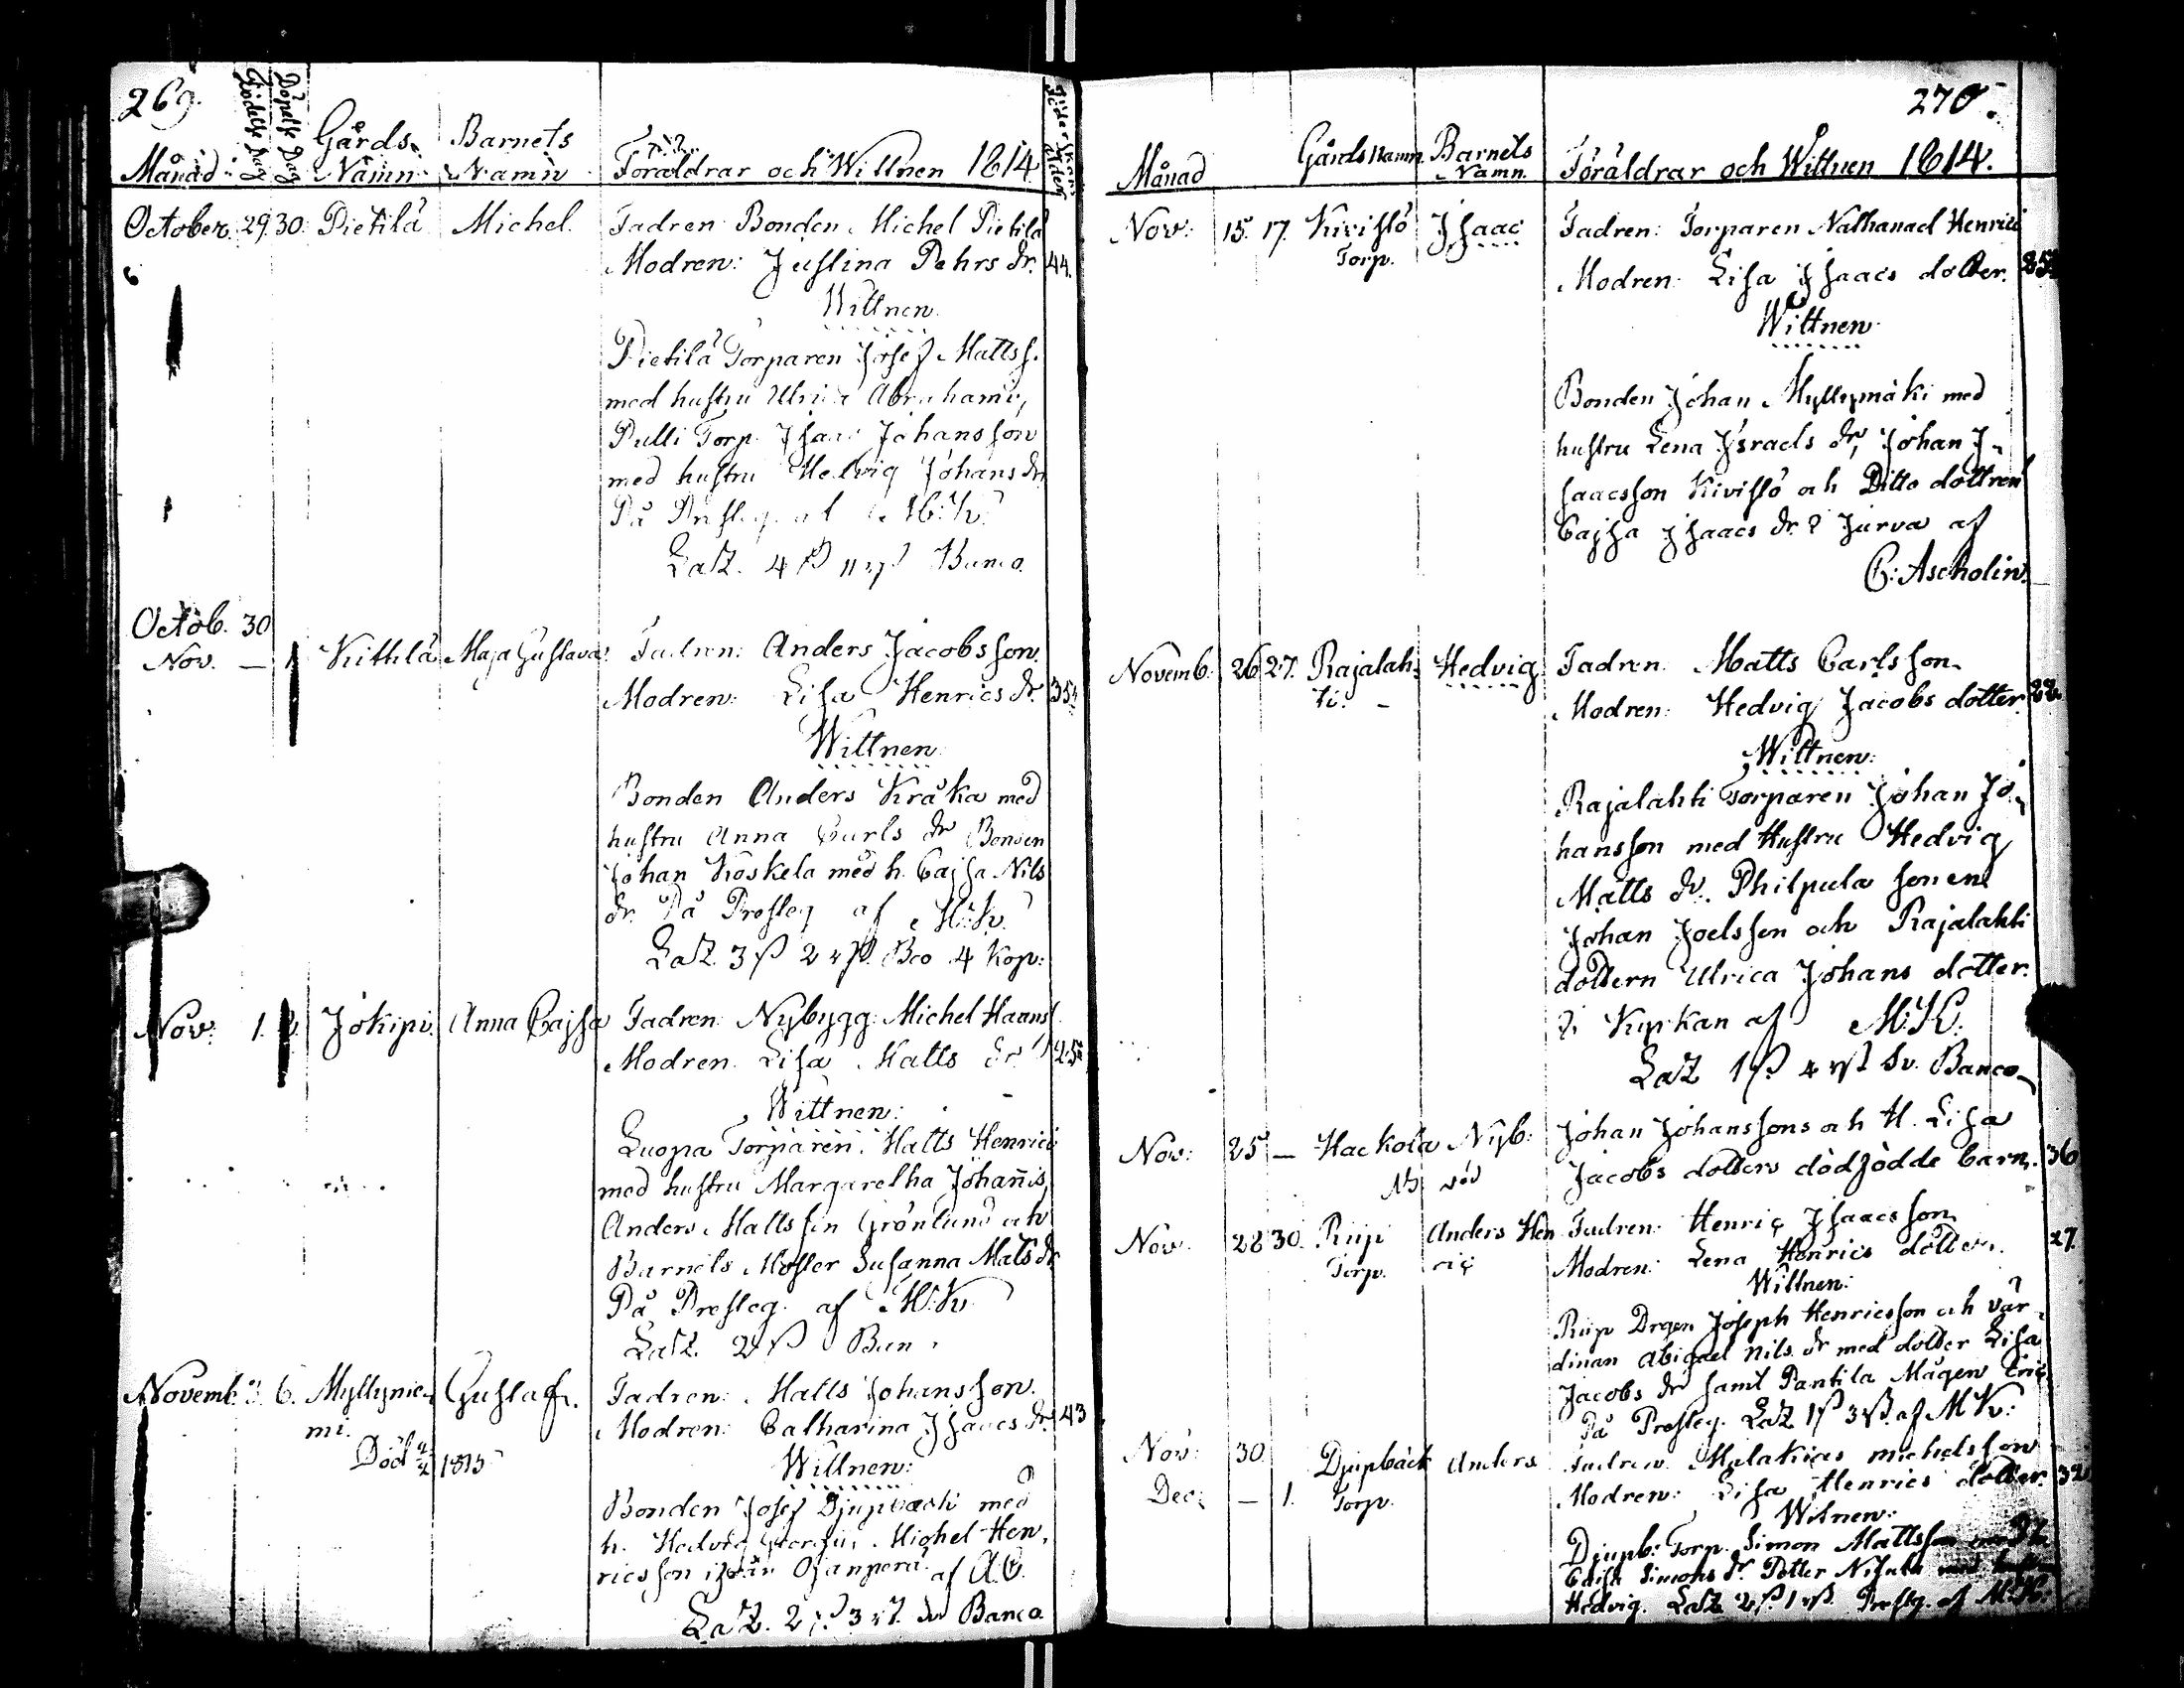 269.
Födelse Dag
Döpelse Dag
Gårds Namn
Barnets Namn
Månad
Föräldrar och Wittnen 1814
October. 29. 30. Pietilä Michel. Fadren Bonden Michel Pietilä
Modren: Justina Pehrs dr. 44.
Wittnen
Pietilä Torparen Josef Matts s.
med hustru Ulrica Abrahams,
Pulli Torp. Isaac Johansson
med hustru Hedvig Johans dr.
På Presteg. af M:K:
Banco
Octob. 30
Nov. — 1 Kittilä Maja Gustava. Fadren: Anders Jacobsson.
Modren: Lisa Henrics dr. 35
Wittnen
Bonden Anders Kråka med
hustru Anna Carls dr Bonden
Johan Koskela med h. Cajsa Nils
dr. På Presteg af M:K:
3 2 Bco 4 Kop:
Nov: 1. Jokipi. Anna Cajsa Fadren: Nybygg: Michel Hanss
Modren. Lisa Matts dr. 25
Wittnen:
Luopa Torparen. Matts Henrics
med hustru Margaretha Johannis,
Anders Mattsson Grönlund och
Barnets Moster Susanna Mats dr
På Presteg. af M:K:
2
Novemb: 6. Myllynie-
mi. Gustaf. Fadren: Matts Johansson.
Modren: Catharina Isaacs dr. 43
Död 1815
Wittnen:
Bonden Josef Djupbäck med
h. Hedvig Michel Hen-
ricsson ifrån Ojanperä af A.C.
2 3 Banco
270.
Månad Gårds Namn. Barnets Namn. Föräldrar och Wittnen 1814.
Nov: 15. 17. Kivistö Isaac Fadren: Torparen Nathanael Henrics
Torp. Modren: Lisa Isaacs dotter.
Wittnen
Bonden Johan Myllymäki med
hustru Lena Israels dr, Johan I-
saacsson Kivistö och Ditto dottren
Cajsa Isaacs dr. i Jurva af
C: Ascholin.
Novemb: 26 27. Rajalah-
ti. Hedvig Fadren. Matts Carlsson.
Modren: Hedvig Jacobs dotter. 22
Wittnen:
Rajalahti Torparen Johan Jo-
hansson med Hustru Hedvig
Matts dr. Philpula sonen
Johan Joelsson och Rajalahti
dottern Ulrica Johans dotter.
i Kyrkan af M:K.
1 4 Sv. Banco
Nov: 25 — Hackola Nyb: Johan Johanssons och H. Lisa
Jacobs dotters dödfödde barn. 36
Nov. 28 30. Riip Anders Hen
Torp. ric Fadren: Henric Isaacsson
Modren: Lena Henrics dotter. 27.
Wittnen:
Riip Drgen Joseph Henricsson och vär-
dinan Abigael Nils dr med dotter Lisa
Jacobs dr samt Pantila Mågen Eric.
På Presteg. 1 3 af M K:
Nov: 30. Djupbäck Anders Fadren Malakias Michelsson
Dec: — 1. Torp. Modren: Lisa Henrics dotter. 32
Witnen:
Djupb: Torp. Simon Mattsson
Caisa Simons dr. Petter
Hedvig. 2 1 Prestg. af M:K: